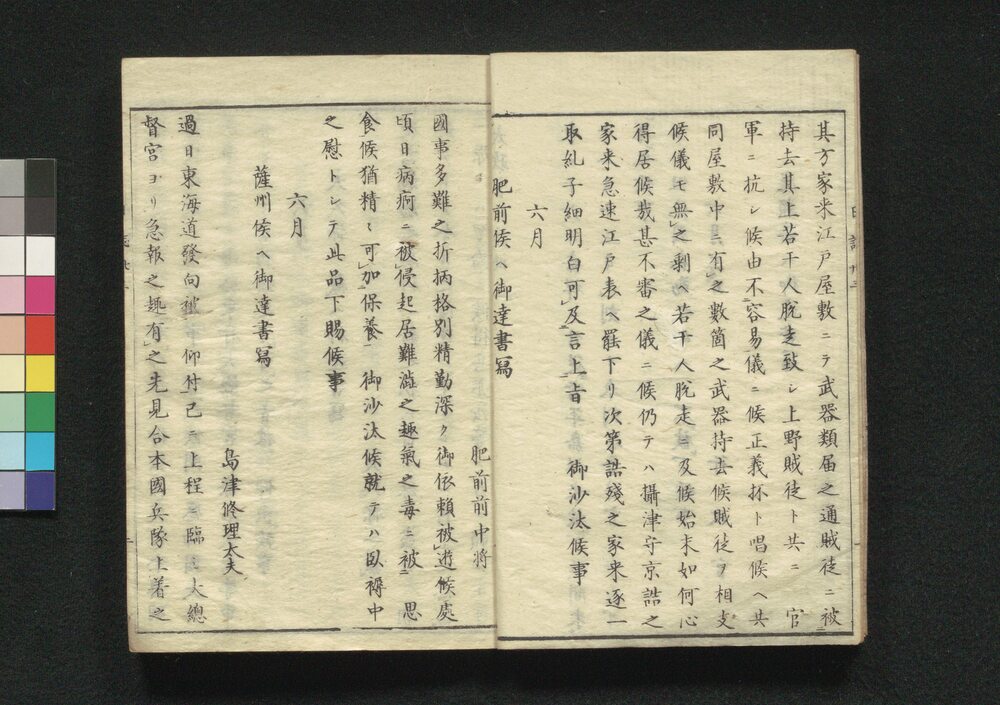 其方家来江戸屋敷ニテ武器類届之通賊徒ニ被
持去其上若干人脱走致シ上野賊徒ト共ニ 官
軍ニ抗シ候由不容易儀ニ候正義抔ト唱候ヘ共
同屋敷中ニ有之数箇之武器持去候賊徒ヲ相支
候儀モ無之剰ヘ若干人脱走ニ及候始末如何心
得居候哉甚不審之儀ニ候仍テハ攝津守京詰之
家来急速江戸表ヘ罷下リ次第詰殘之家来逐一
取糺子細明白可及言上旨 御沙汰候事
六月
肥前侯ヘ御達書寫
肥前前中将
國事多難之折柄格別精勤深ク御依頼被遊候處
頃日病痾ニ被侵起居難澁之趣氣之毒ニ被 思
食候猶精々可加保養 御沙汰候就テハ臥褥中
之慰トシテ此品下賜候事
六月
薩州侯ヘ御達書寫
島津修理太夫
過日東海道發向被 仰付已ニ上程ニ臨ミ大總
督宮ヨリ急報之趣有之先見合本國兵隊上着之